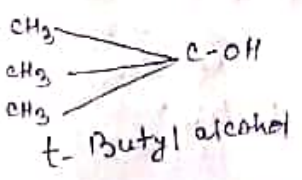 CH3
CH3
CH3
C-OH
t- Butyl alcohol